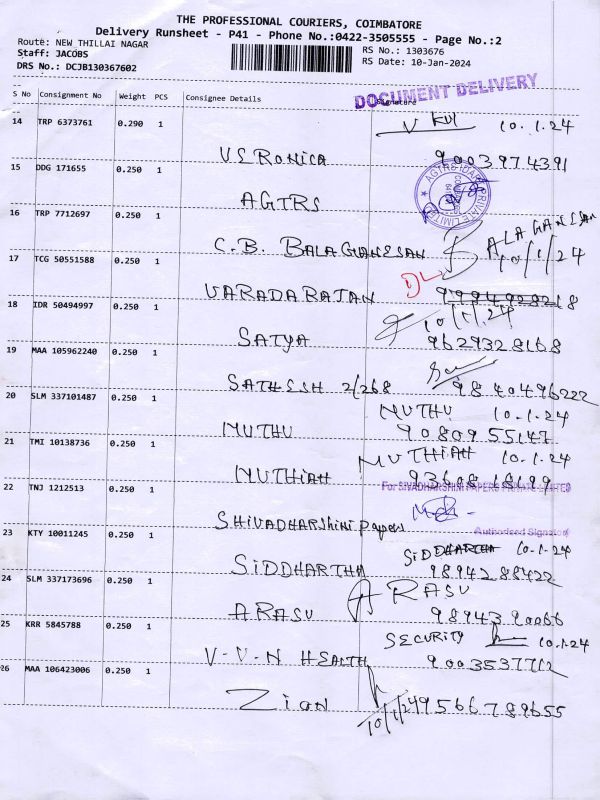 THE PROFESSIONAL COURIERS, COIMBATORE
Delivery Runsheet - P41 - Phone No.:0422-3505555 - Page No.:2
Route: NEW THILLAI NAGAR
RS No.: 1303676
Staff: JACOBS
RS Date: 10-Jan-2024
DRS No.: DCJB130367602
DOCUMENT DELIVERY
S No Consignment No Weight PCS Consignee Details Signature
14 TRP 6373761 0.290 1 VERONICA 10.1.24
9003974391
15 DDG 171655 0.250 1 AGTRS
AGTRS IDA PRIVATE LIMITED
16 TRP 7712697 0.250 1 C.B. BALAGANESAN BALAGANESAN
10/1/24
17 TCG 50551588 0.250 1 VARADARAJAN DL 9994928218
18 IDR 50494997 0.250 1 SATYA 10/1/24
9629328168
19 MAA 105962240 0.250 1 SATHESH 2/268 9840496222
20 SLM 337101487 0.250 1 MUTHU MUTHU 10.1.24
9080955147
21 TMI 10138736 0.250 1 MUTHIAH MUTHIAH 10.1.24
9360818199
22 TNJ 1212513 0.250 1 SHIVADHARSHINI Papers For SIVADHARSHINI PAPERS PRIVATE LIMITED
Authorised Signatory
23 KTY 10011245 0.250 1 SIDDHARTHA SIDDHARTHA 10.1.24
9894288422
24 SLM 337173696 0.250 1 ARASU ARASU
9894390066
25 KRR 5845788 0.250 1 V-V-N HEALTH SECURITY 10.1.24
9003537712
26 MAA 106423006 0.250 1 Zion 10/1/24 9566789655